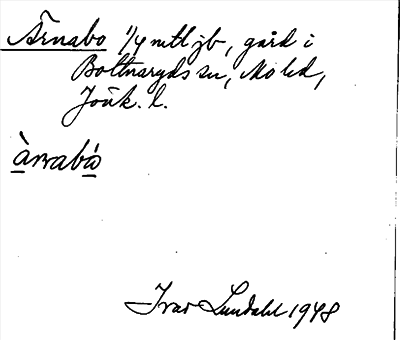 Årnabo 1/4 mtl jb, gård i
Bottnaryds sn, Mo hd,
Jönk. l.
àrnabò
Ivar Lundahl 1948